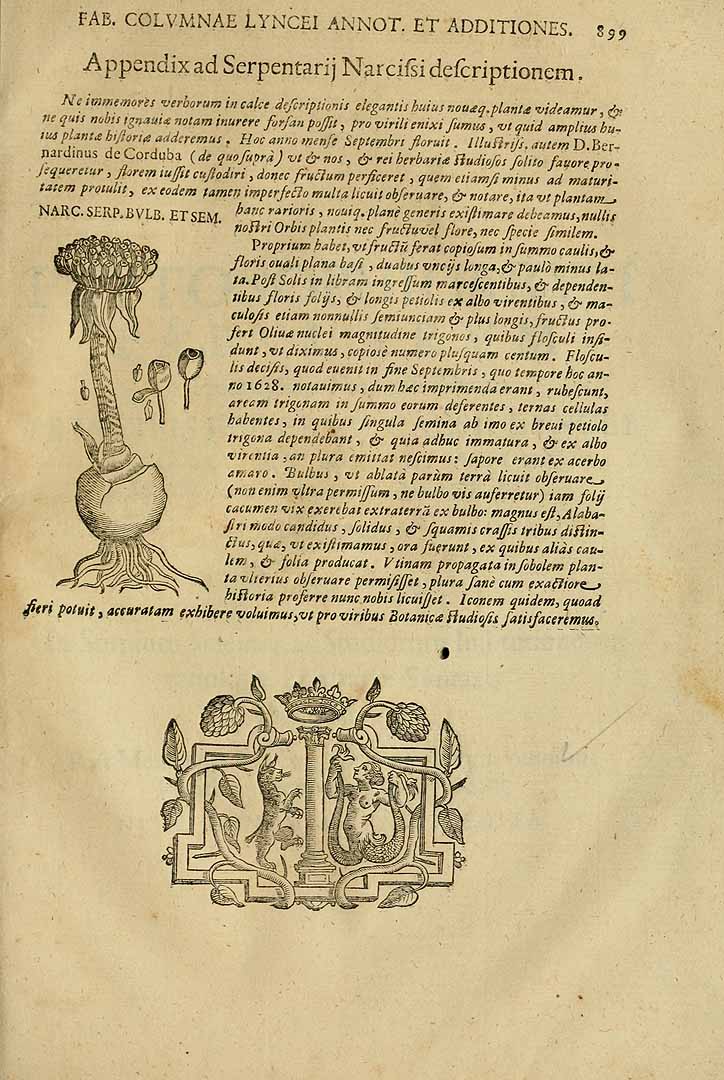 FAB. COLVMNAE LYNCEI ANNOT. ET ADDITIONES. 899
Appendix ad Serpentarij Narciſsi deſcriptionem.
Ne immemores verborum in calce deſcriptionis elegantis huius nouæq. plantæ videamur, &
ne quis nobis ignauiæ notam inurere forſan poſſit, pro virili enixi ſumus, vt quid amplius hu-
ius plantæ hiſtoriæ adderemus. Hoc anno menſe Septembri floruit. Illuſtriſs. autem D. Ber-
nardinus de Corduba (de quo ſuprà) vt & nos, & rei herbariæ ſtudioſos ſolito fauore pro-
ſequeretur, florem iuſſit cuſtodiri, donec fructum perficeret, quem etiamſi minus ad maturi-
tatem protulit, ex eodem tamen imperfecto multa licuit obſeruare, & notare, ita vt plantam
NARC. SERP. BVLB. ET SEM.
hanc rarioris, nouiq. planè generis exiſtimare debeamus, nullis
noſtri Orbis plantis nec fructu vel flore, nec ſpecie ſimilem.
Proprium habet, vt fructũ ferat copioſum in ſummo caulis, &
floris ouali plana baſi, duabus vncijs longa, & paulò minus la-
ta. Poſt Solis in libram ingreſſum marceſcentibus, & dependen-
tibus floris folijs, & longis petiolis ex albo virentibus, & ma-
culoſis etiam nonnullis ſemiunciam & plus longis, fructus pro-
fert Oliuæ nuclei magnitudine trigonos, quibus floſculi inſi-
dunt, vt diximus, copioſè numero pluſquam centum. Floſcu-
lis deciſis, quod euenit in fine Septembris, quo tempore hoc an-
no 1628. notauimus, dum hæc imprimenda erant, rubeſcunt,
aream trigonam in ſummo eorum deferentes, ternas cellulas
habentes, in quibus ſingula ſemina ab imo ex breui petiolo
trigona dependebant, & quia adhuc immatura, & ex albo
virentia, an plura emittat neſcimus: ſapore erant ex acerbo
amaro. Bulbus, vt ablatà parùm terrà licuit obſeruare
(non enim vltra permiſſum, ne bulbo vis auferretur) iam folij
cacumen vix exerebat extra terrã ex bulbo: magnus eſt, Alaba-
ſtri modo candidus, ſolidus, & ſquamis craſſis tribus diſtin-
ctus, quæ, vt exiſtimamus, ora fuerunt, ex quibus aliàs cau-
lem, & folia producat. Vtinam propagata in ſobolem plan-
ta vlterius obſeruare permiſiſſet, plura ſanè cum exactiore
hiſtoria proferre nunc nobis licuiſſet. Iconem quidem, quoad
fieri potuit, accuratam exhibere voluimus, vt pro viribus Botanicæ ſtudioſis ſatisfaceremus.